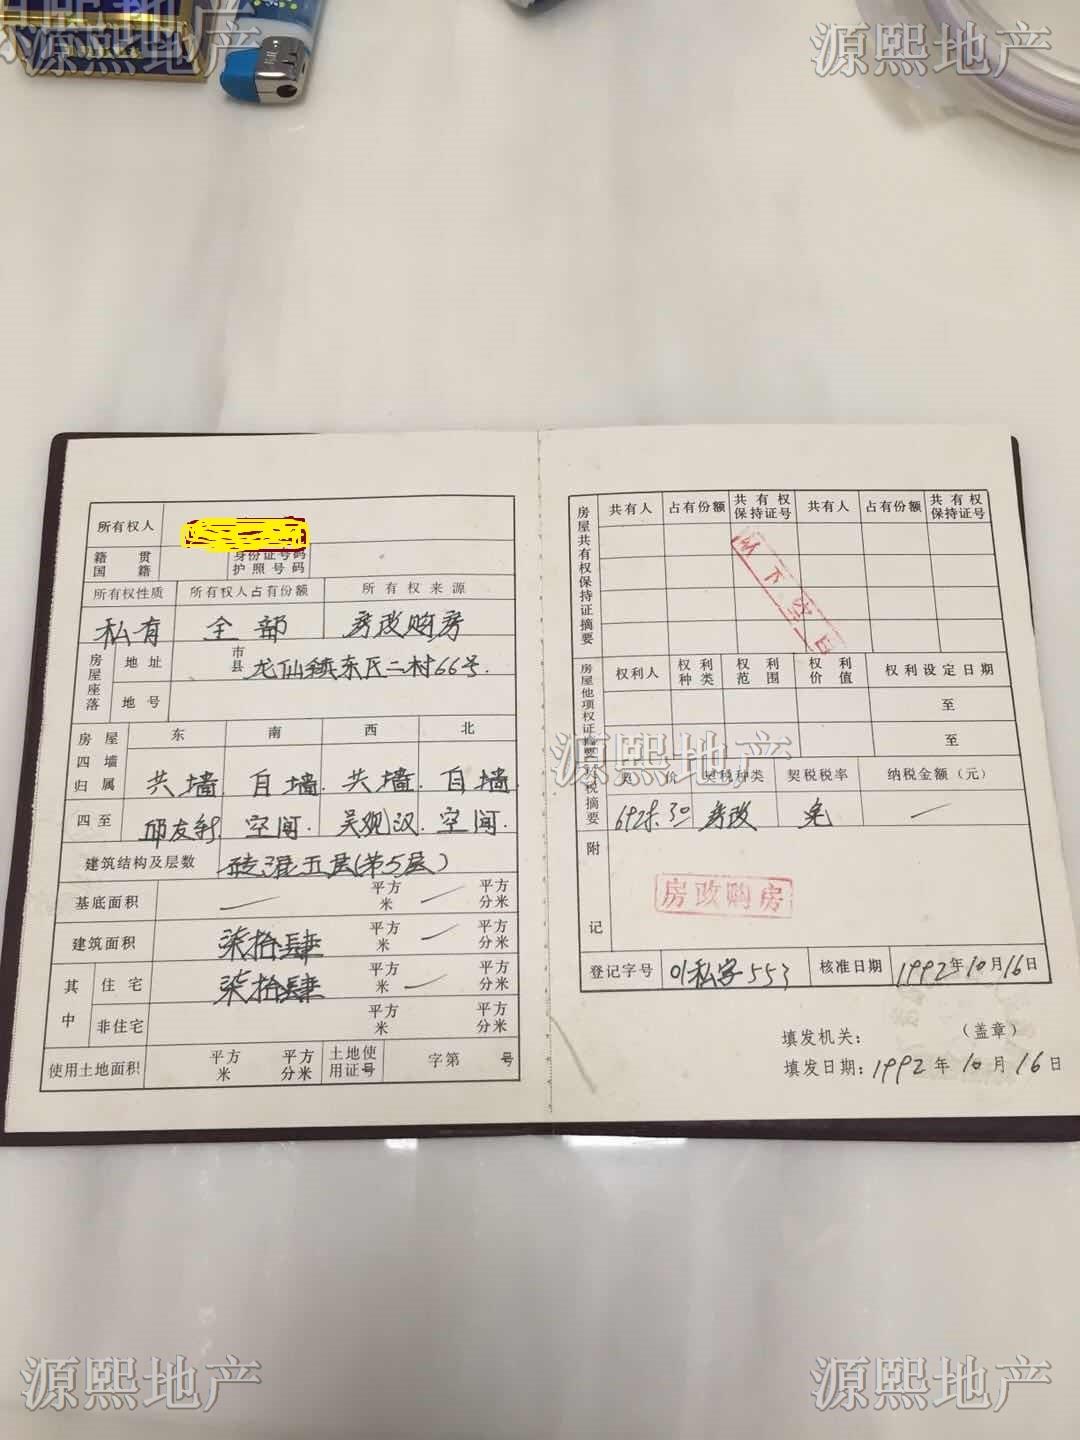 源熙地产
源熙地产
所有权人
籍贯 国籍 身份证号码 护照号码
所有权性质 所有权人占有份额 所有权来源
私有 全部 房改购房
房屋座落 地址 市县 龙仙镇东区二村66号.
地号
房屋四墙归属 东 南 西 北
共墙 自墙. 共墙. 自墙.
四至 邱友新 空间. 吴观汉. 空间.
建筑结构及层数 砖混五层(第5层)
基底面积 平方米 平方分米
建筑面积 柒拾肆 平方米 平方分米
其中 住宅 柒拾肆 平方米 平方分米
非住宅 平方米 平方分米
使用土地面积 平方米 平方分米 土地使用证号 字第 号
房屋共有权保持证摘要 共有人 占有份额 共有权保持证号 共有人 占有份额 共有权保持证号
以下空白
房屋他项权证摘要 权利人 权利种类 权利范围 权利价值 权利设定日期
至
至
源熙地产
契税摘要 契价 契税种类 契税税率 纳税金额（元）
房改 免
附记
房改购房
登记字号 01私字553 核准日期 1992年10月16日
填发机关： （盖章）
填发日期：1992年10月16日
源熙地产
源熙地产